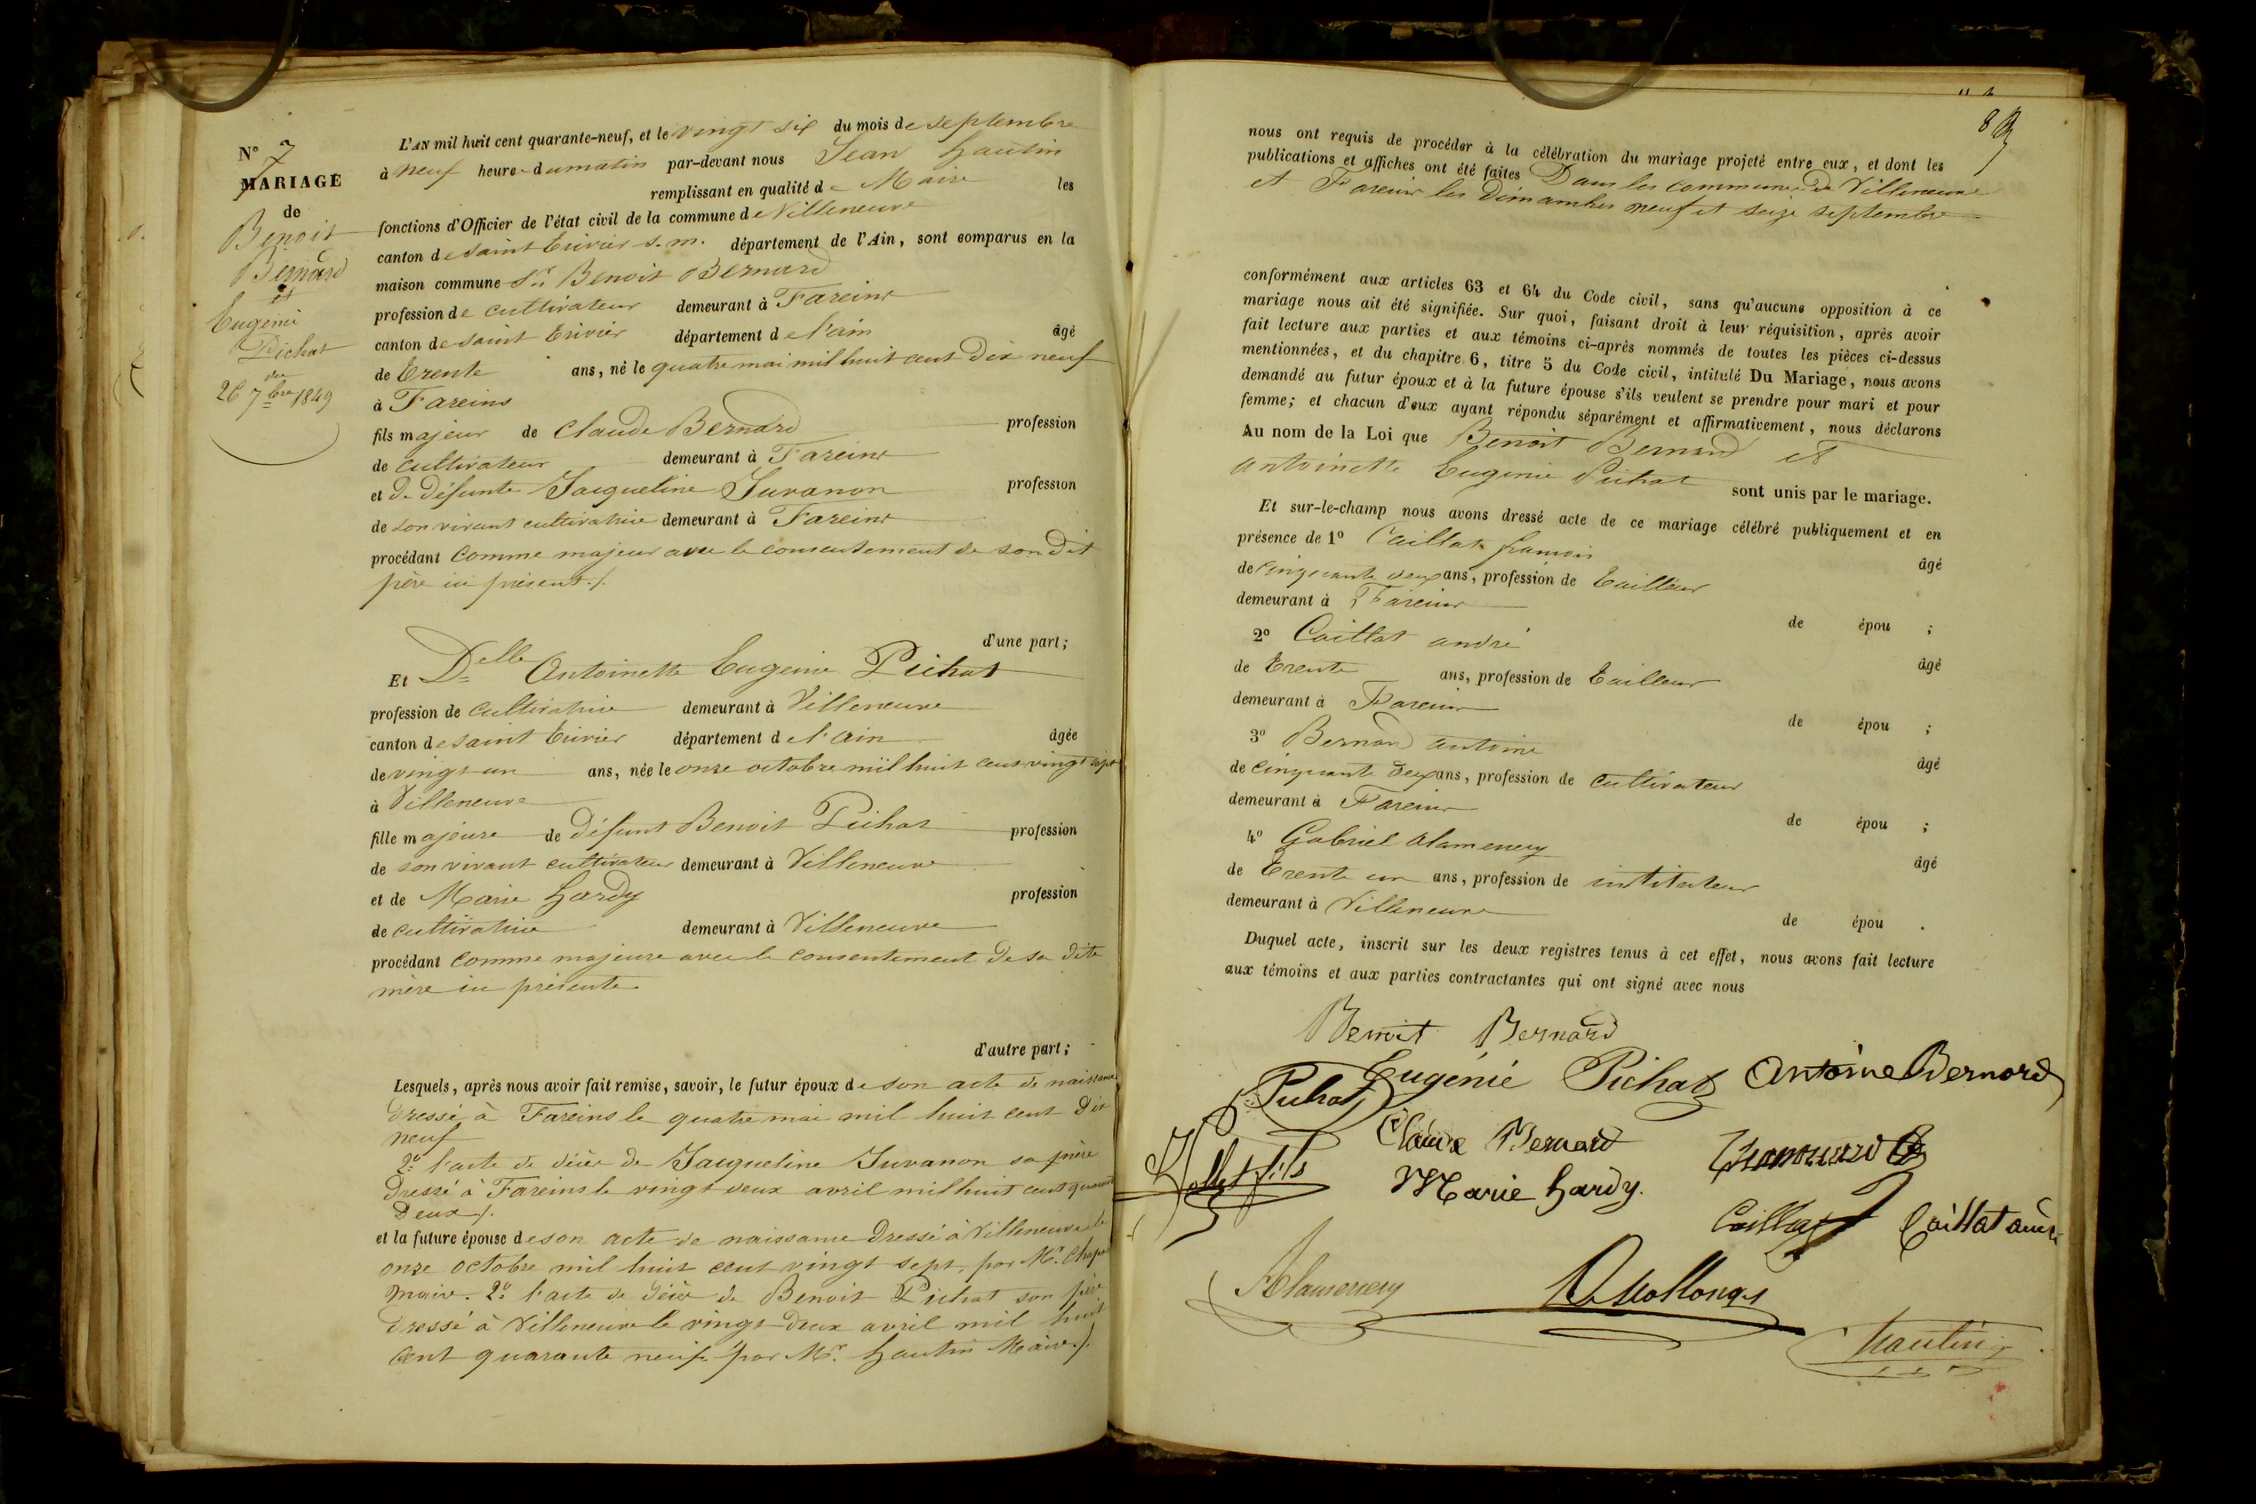 N° 7
MARIAGE
de
Benoit
Bernard
et
Eugenie
Pichat
du
26 7bre 1849
L'AN mil huit cent quarante-neuf, et le vingt six du mois de septembre
à neuf heure du matin par-devant nous Jean hautin
remplissant en qualité de Maire les
fonctions d'Officier de l'état civil de la commune de Villeneuve
canton de saint trivier s. m. département de l'Ain, sont comparus en la
maison commune Sr Benoit Bernard
profession de cultivateur demeurant à Fareins
canton de saint trivier département de l'ain âgé
de trente ans, né le quatre mai mil huit cent dix neuf
à Fareins
fils majeur de Claude Bernard profession
de cultivateur demeurant à Fareins
et de défunte Jacqueline Juvanon profession
de son vivant cultivatrice demeurant à Fareins
procédant comme majeur avec le consentement de son dit
père ici présent ./.
d'une part;
Et Delle Antoinette Eugenie Pichat
profession de cultivatrice demeurant à Villeneuve
canton de saint trivier département de l'ain âgée
de vingt un ans, née le onze octobre mil huit cent vingt sept
à Villeneuve
fille majeure de défunt Benoit Pichat profession
de son vivant cultivateur demeurant à Villeneuve
et de Marie hardy profession
de cultivatrice demeurant à Villeneuve
procédant comme majeure avec le consentement de sa dite
mère ici présente
d'autre part;
Lesquels, après nous avoir fait remise, savoir, le futur époux de son acte de naissance
dressé à Fareins le quatre mai mil huit cent dix
neuf
2° l'acte de décès de Jacqueline Juvanon sa mère
dressé à Fareins le vingt deux avril mil huit cent quarante
deux ./.
et la future épouse de son acte de naissance dressé à Villeneuve le
onze octobre mil huit cent vingt sept, par Mr.
maire. 2° l'acte de décès de Benoit Pichat son père
dressé à Villeneuve le vingt deux avril mil huit
cent quarante neuf par Mr. hautin Maire ./.
nous ont requis de procéder à la célébration du mariage projeté entre eux, et dont les
publications et affiches ont été faites Dans les communes de Villeneuve
et Fareins les dimanches neuf et seize septembre
conformément aux articles 63 et 64 du Code civil, sans qu'aucune opposition à ce
mariage nous ait été signifiée. Sur quoi, faisant droit à leur réquisition, après avoir
fait lecture aux parties et aux témoins ci-après nommés de toutes les pièces ci-dessus
mentionnées, et du chapitre 6, titre 5 du Code civil, intitulé Du Mariage, nous avons
demandé au futur époux et à la future épouse s'ils veulent se prendre pour mari et pour
femme; et chacun d'eux ayant répondu séparément et affirmativement, nous déclarons
Au nom de la Loi que Benoit Bernard et
antoinette Eugenie Pichat sont unis par le mariage.
Et sur-le-champ nous avons dressé acte de ce mariage célébré publiquement et en
présence de 1° Caillat françois âgé
de cinquante deux ans, profession de tailleur
demeurant à Fareins
de épou ;
2° Caillat andré âgé
de trente ans, profession de tailleur
demeurant à Fareins
de épou ;
3° Bernard antoine âgé
de cinquante deux ans, profession de cultivateur
demeurant à Fareins
de épou ;
4° Gabriel alamercery âgé
de trente un ans, profession de instituteur
demeurant à Villeneuve
de épou .
Duquel acte, inscrit sur les deux registres tenus à cet effet, nous avons fait lecture
aux témoins et aux parties contractantes qui ont signé avec nous
Benoit Bernard
Eugénie Pichat Antoine Bernard
Pichat
Claude Bernard
fils
Marie hardy.
Caillat Caillat
Alamercery
hautin